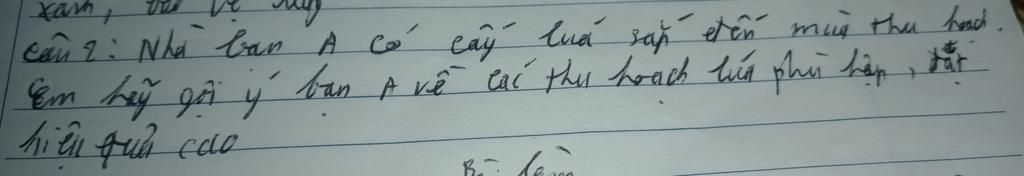 xanh, bảo vệ rừng
câu 2: Nhà bạn A có cấy luá sắp đến mùa thu hoạch.
Em hãy gợi ý bạn A về các thu hoạch lúa phù hợp, đạt
hiệu quả cao
Bài làm